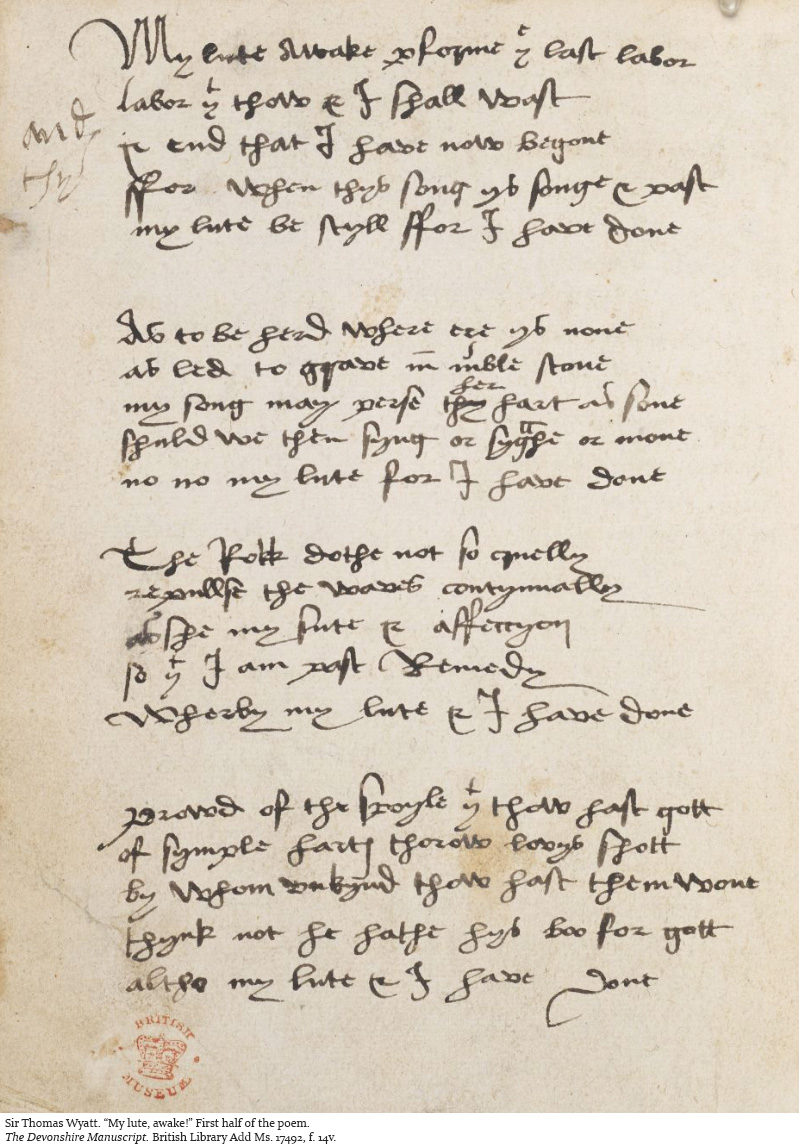 My lute Awake pforme yͤ last labor
labor yͭ thow & I shall wast
& end that I have now begone
and
thys
ffor when thys song ys songe & past
my lute be styll ffor I have done
As to be herd where ere ys none
as led to grave in mʳble stone
her
my song may perse thy hart as sone
shuld we then syng or syghe or mone
no no my lute for I have done
The Rokk dothe not so cruelly
repullse the waves contynnally
as she my sute & affectyon
so yͭ I am past Remedy
Wherby my lute & I have done
Prowd of the spoyle yͭ thow hast gott
of symple harts thorow lovys shott
by whom unkynd thow hast them wone
thynk not he hathe hys bow for gott
altho my lute & I have done
BRITISH
MUSEUM
Sir Thomas Wyatt. “My lute, awake!” First half of the poem.
The Devonshire Manuscript. British Library Add Ms. 17492, f. 14v.